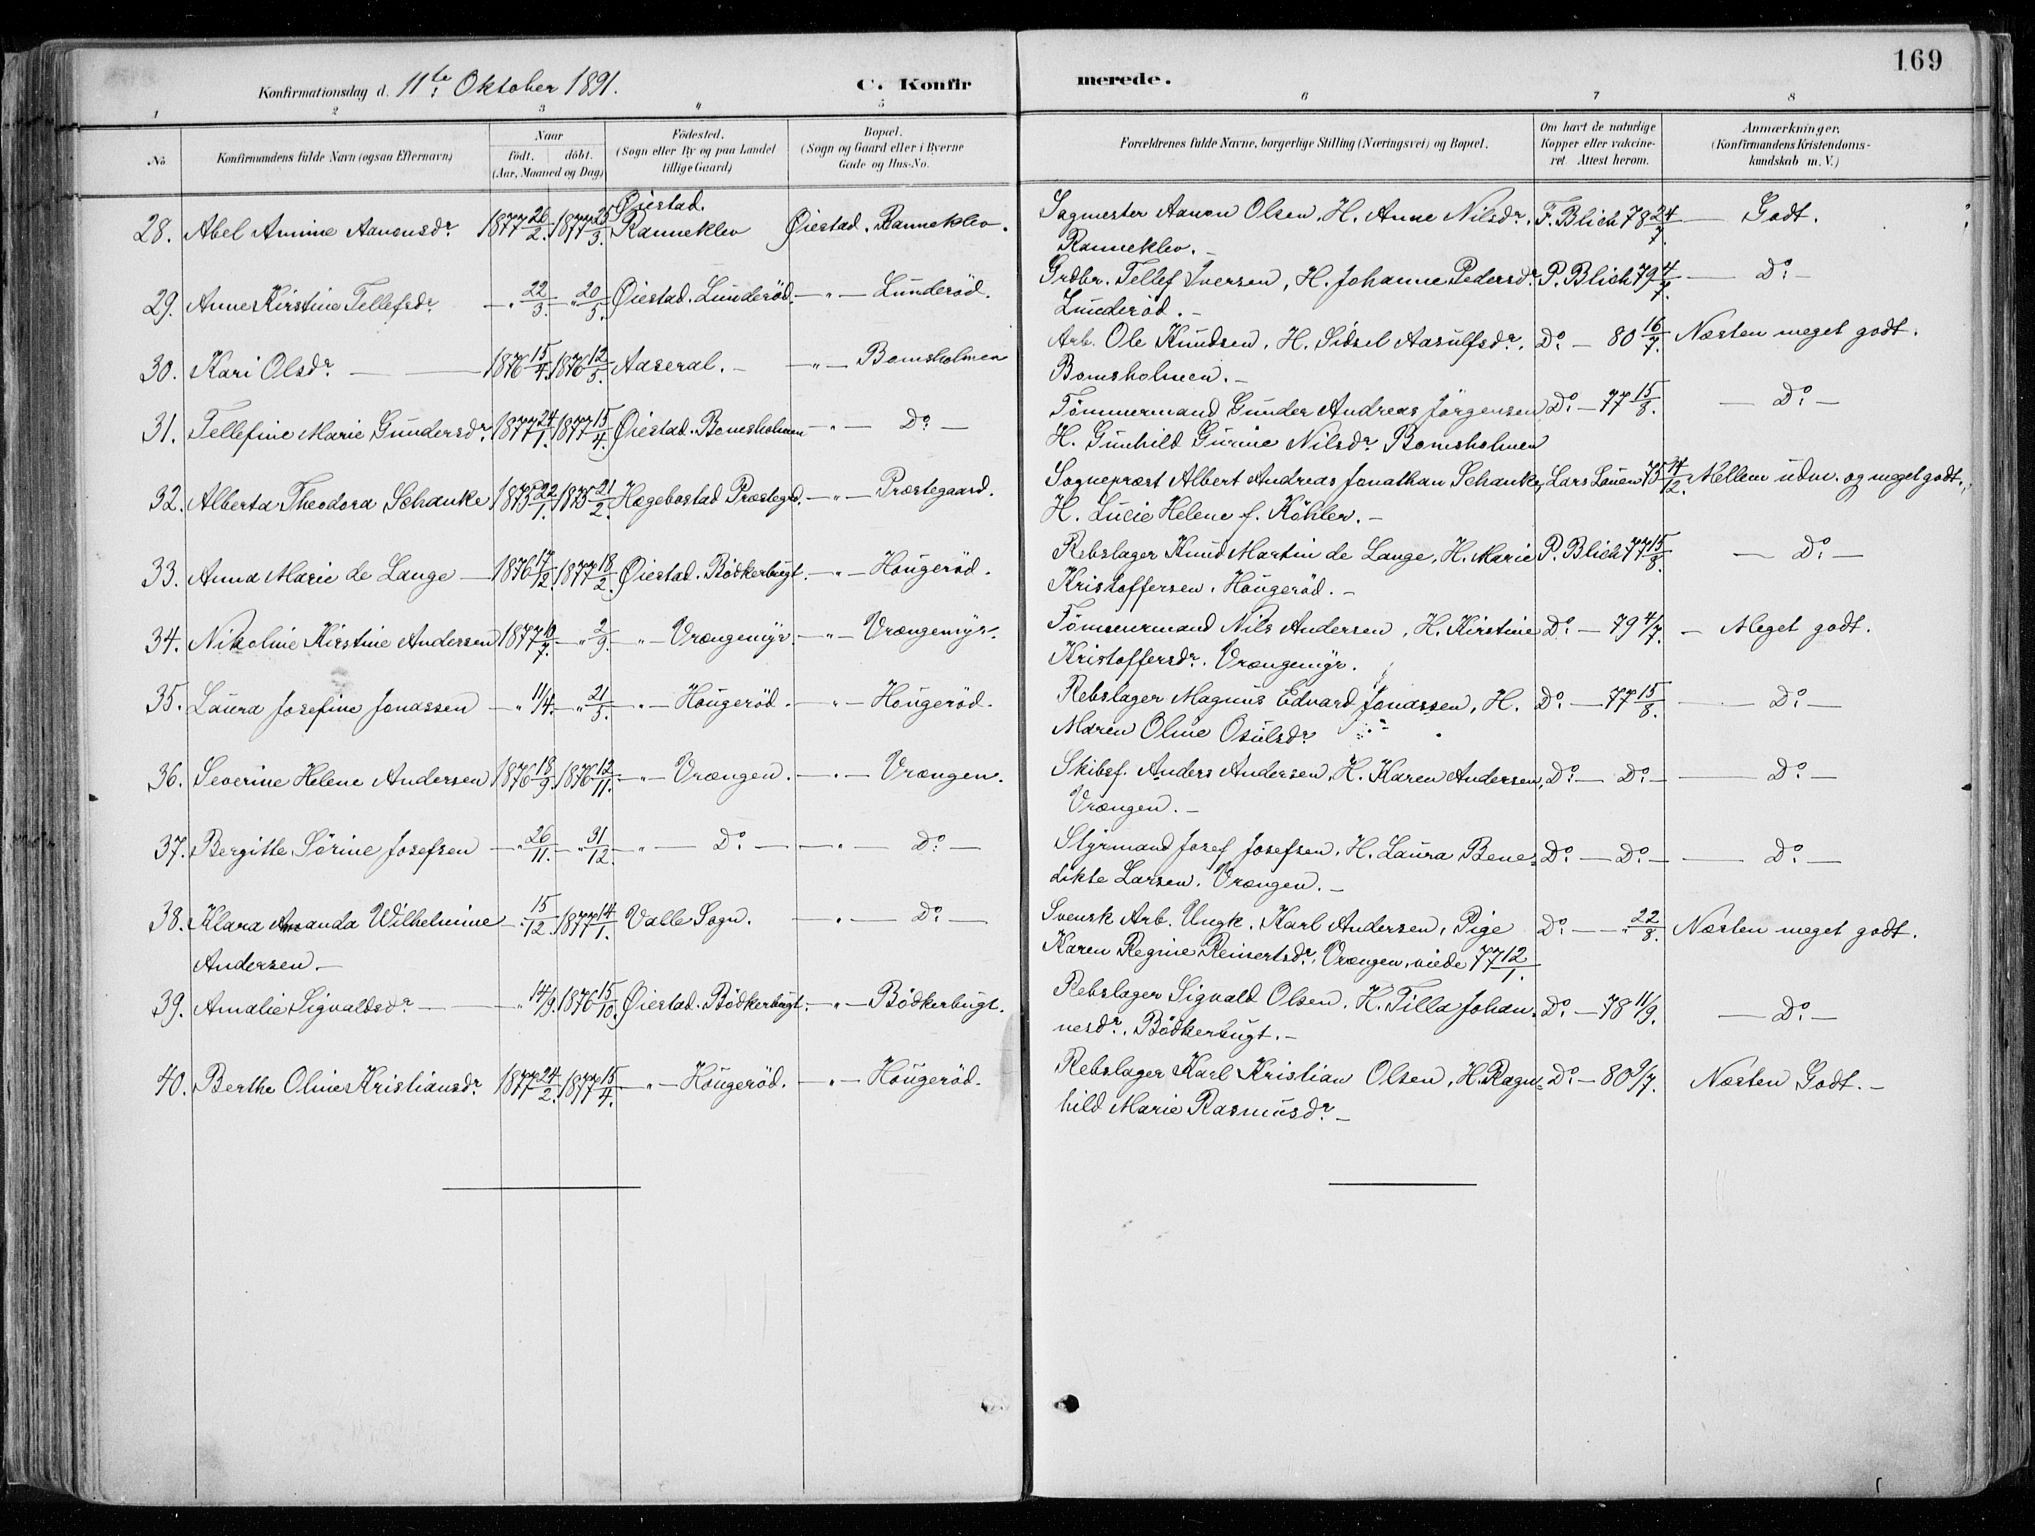 169
Konfirmationsdag d. 11te Oktober 1891.
C. Konfirmerede.
1 2 3 " 5 6 7 8
No
Konfirmandens fulde Navn (ogsaa Efternavn)
Naar
födt. döbt.
(Aar, Maaned og Dag)
Födested.
(Sogn eller By og paa Landet
tillige Gaard)
Bopæl.
(Sogn og Gaard eller i Byerne
Gade og Hus-No.
Forældrenes fulde Navne, borgerlige Stilling (Næringsvei) og Bopæl.
Om havt de naturlige
Kopper eller vakcine-
ret. Attest herom.
Anmærkninger.
(Konfirmandens Kristendoms-
kundskab m. V.)
28. Abel Amine Aanonsdr. 1877 26/2. 1877 25/3. Øiestad. Ranneklev Øiestad. Ranneklev. Sagmester Aanon Olsen, H. Anne Nilsdr. F. Blich 78 24/7. — Godt.
Ranneklev. –
29. Anne Kirstine Tellefsdr. — " 22/3. — " 20/5. Øiestad. Lunderöd. — " — Lunderöd. Grdbr. Tellef Iversen, H. Johanne Pedersdr. P. Blich 79 4/7. — Do. –
Lunderöd. –
30. Kari Olsdr. — 1876 15/4. 1876 12/5. Aaseral. – — " — Bomsholmen Arb. Ole Knudsen, H. Sidsel Aasulfsdr. Do. — 80 16/7. Næsten meget godt.
Bomsholmen. –
31. Tellefine Marie Gundersdr. 1877 24/1. 1877 15/4. Øiestad. Bomsholmen — " — Do. — Tömmermand Gunder Andreas Jörgensen Do. — 77 15/8. — Do. —
H. Gunhild Gurine Nilsdr. Bomsholmen
32. Alberta Theodora Schanke 1875 22/1. 1875 21/2. Hægebostad Præstegrd. — " — Præstegaard. Sognepræst Albert Andreas Jonathan Schanke, Lars Lauen 75 14/12. Mellem udm. og meget godt.
H. Lucie Helene f. Köhler. –
33. Anna Marie de Lange — 1876 17/12. 1877 18/2. Øiestad. Bödkerbugt. — " — Hougeröd. Rebslager Knud Martin de Lange, H. Marie P. Blich 77 15/8. — Do. —
Kristoffersen, Hougeröd. –
34. Nikoline Kirstine Andersen 1877 10/7. — " 2/9. — " — Vrængemyr. — " — Vrængemyr. Tömmermand Nils Andersen, H. Kirstine Do. — 79 4/7. — Meget godt.
Kristoffersdr. Vrængemyr.
35. Laura Josefine Jonassen — " 11/4. — " 21/5. — " — Hougeröd. — " — Hougeröd. Rebslager Magnus Edvard Jonassen, H. Do. — 77 15/8. — Do. —
Maren Oline Osulsdr.
36. Severine Helene Andersen 1876 18/9. 1876 12/11. — " — Vrængen. — " — Vrængen. Skibsf. Anders Andersen, H. Karen Andersen, Do. — Do. — — Do. —
Vrængen. –
37. Bergitte Sörine Josefsen — " 26/11. — " 31/12. — " — Do. — — " — Do. — Styrmand Josef Josefsen, H. Laura Bene- Do. — Do. — — Do. —
dikte Larsen. Vrængen. –
38. Klara Amanda Wilhelmine — " 15/12. 1877 14/1. Valle Sogn. — " — Do. — Svensk Arb. Ungk. Karl Andersen, Pige Do. — " 22/8. Næsten meget godt.
Andersen. – Karen Regine Reinertsdr. Vrængen, viede 77 12/1.
39. Amalie Sigvaldsdr. — " 14/9. 1876 15/10. Øiestad. Bödkerbugt. — " — Bödkerbugt. Rebslager Sigvald Olsen, H. Tilla Johan- Do. — 78 11/9. — Do. —
nesdr. Bödkerbugt. –
40. Berthe Oline Kristiansdr. 1877 24/2. 1877 15/4. — " — Hougeröd. — " — Hougeröd. Rebslager Karl Kristian Olsen, H. Ragn- Do. — 80 9/7. Næsten Godt. –
hild Marie Rasmusdr. –